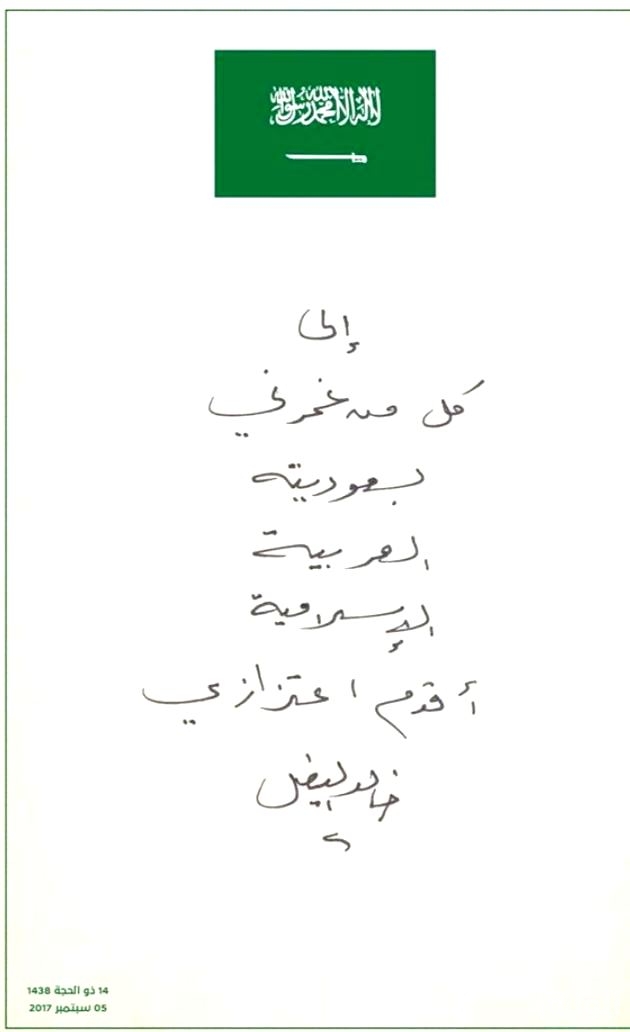 لا إله إلا الله محمد رسول الله
إلى
كل من غمرني
بسعوديته
العربية
الإسلامية
أقدم اعتزازي
خالد الفيصل
14 ذو الحجة 1438
05 سبتمبر 2017